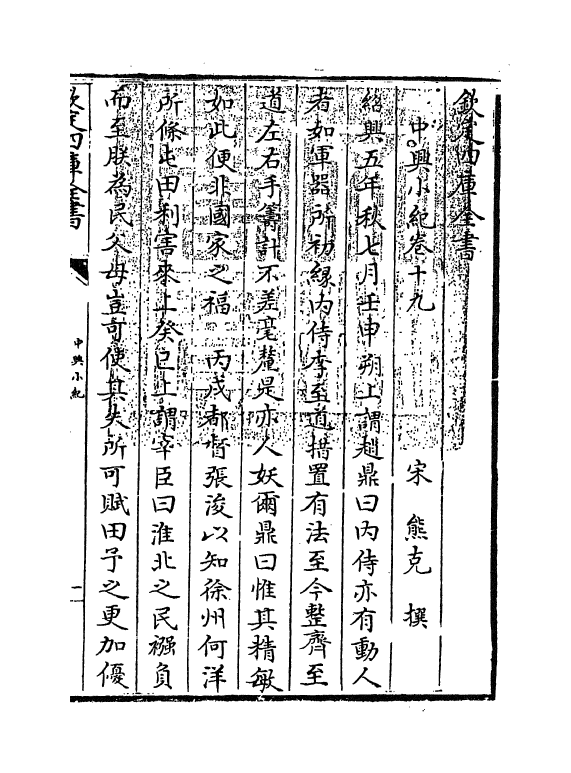 欽定四庫全書
中興小紀卷十九
宋 熊克 撰
紹興五年秋七月壬申朔上謂趙鼎曰内侍亦有動人
者如軍器所初緣内侍李至道措置有法至今整齊至
道左右手籌計不差毫釐是亦人妖爾鼎曰惟其精敏
如此便非國家之福 丙戌都督張浚以知徐州何洋
所條屯田利害來上癸巳上謂宰臣曰淮北之民襁負
而至朕為民父母豈可使其失所可賦田予之更加優
欽定四庫全書
中興小紀
一